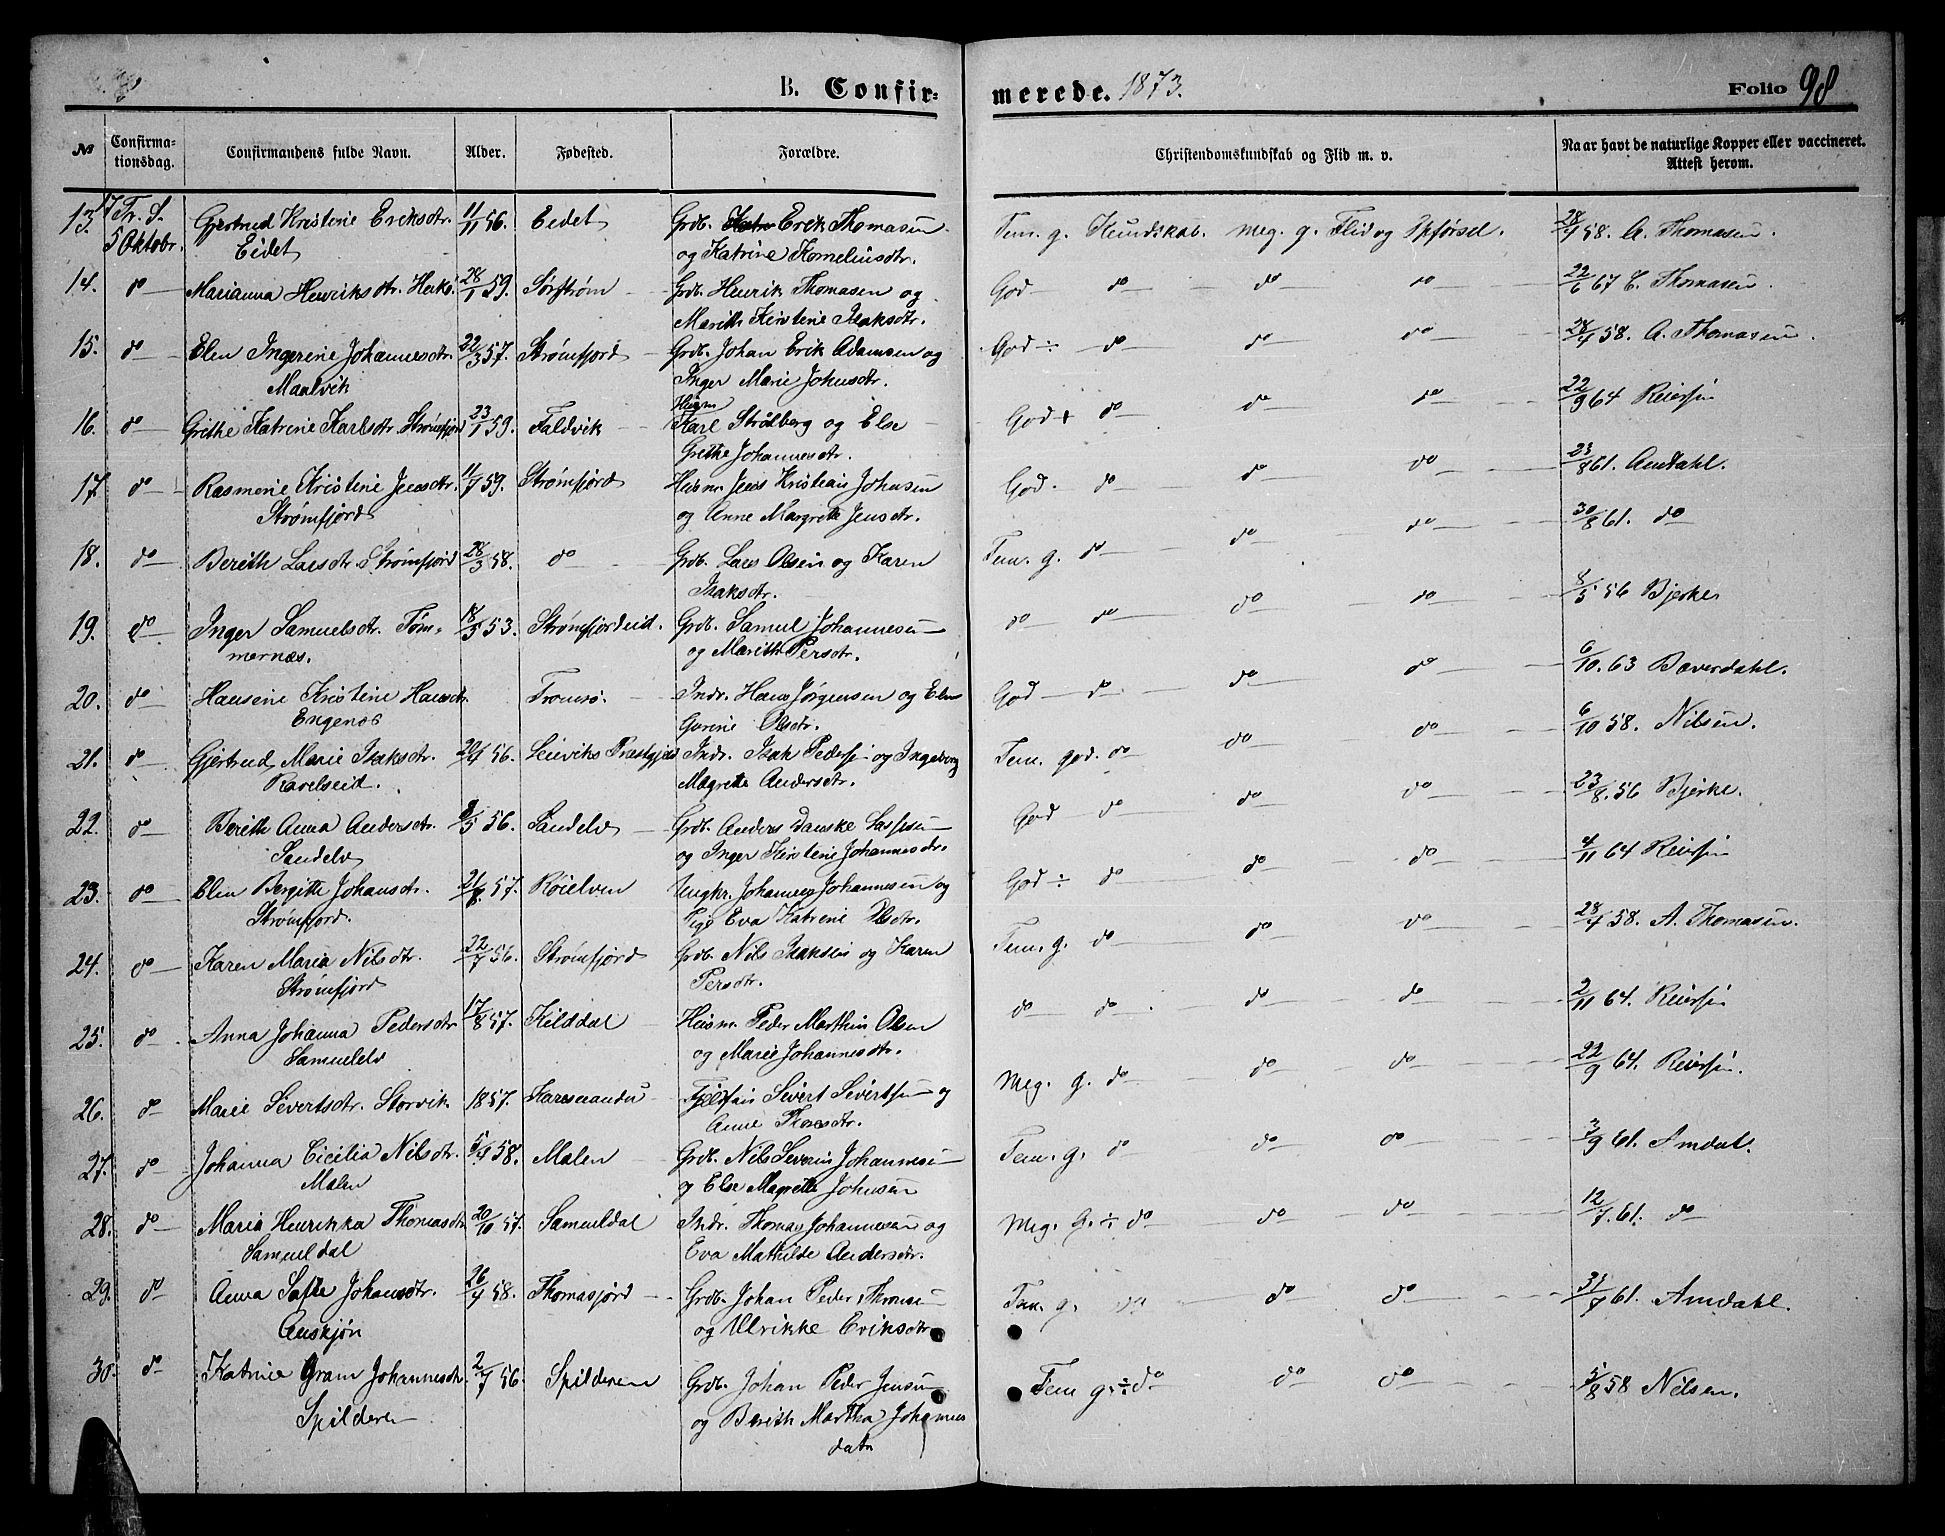 B. Confirmerede. 1873. Folio 98
№ Confirmationsdag. Confirmandens fulde Navn. Alder. Fødested. Forældre. Christendomskundskab og Flid m. v. Naar havt de naturlige Kopper eller vaccineret. Attest herom.
13. 17 Tr. S. Gjertrud Kristine Eriksdtr. 11/11 56. Eidet Grdb. Erik Thomasen Tem. g. Kundskab. meg. g. Flid og Opførsel. 28/4 58. A. Thomasen.
5 Oktobr. Eidet og Katrine Korneliusdtr.
14. do Marianna Henriksdtr. 28/1 59. Sørstrøm Grdb. Henrik Thomasen og God do do do 22/6 67 E. Thomasen.
Marith Kirstine Isaksdtr.
15. do Elen Ingerine Johannesdtr. 22/3 57. Strømfjord Grdb. Johan Erik Adamsen og God ÷ do do do 28/4 58. A. Thomasen.
Maalvik Inger Marie Johnsdtr.
16. do Grithe Katrine Karlsdtr. Strømfjord 23/1 59. Faldvik Husm Karl Strålberg og Else God + do do do 22/9 64 Reiersen
Grethe Johannesdtr.
17. do Rasmine Kristine Jensdtr. 11/7 59. Strømfjord Husm. Jens Kristian Johnsen God. do do do 23/8 61. Amdahl.
Strømfjord og Anne Margrethe Jensdtr.
18. do Berith Larsdtr. Strømfjord 28/3 58. do Grdb. Lars Olsen og Karen Tem. g. do do do 30/8 61. do
Isaksdtr.
19. do Inger Samuelsdtr. Tøm- 18/5 53. Strømfjordeid. Grdb. Samuel Johannesen do do do do 8/5 56 Bjerke
mernæs. og Marith Persdtr.
20. do Hansine Kristine Hansdtr. Tromsø. Indr. Hans Jørgensen og Elen God do do do 6/10. 63 Baverdahl.
Engenes Gurine Olsdtr.
21. do Gjertrud Marie Isaksdtr. 20/4 56. Lenviks Præstgjeld Indr. Isak Pedersen og Ingeborg Tem. god. do do do 6/10 58. Nilsen.
Ravelseid. Magrethe Andersdtr.
22. do Berith Anna Andersdtr. 9/5 56. Sandelv Grdb. Anders Danske Lassesen God do do do 23/8. 56 Bjerke.
Sandelv og Inger Kirstine Johannesdtr.
23. do Elen Bergitte Johansdtr. 21/8 57. Røielven Ungkr. Johannes Johannesen og God ÷ do do do 4/11 64 Reiersen
Strømfjord. Pige Eva Katrine Olsdtr.
24. do Karen Maria Nilsdtr. 22/7 56. Strømfjord Grdb. Nils Isaksen og Karen Tem. g. do do do 28/4 58. A. Thomasen.
Strømfjord Persdtr.
25. do Anna Johanna Pedersdtr 17/8 57. Kilddal Husm. Peder Marthin Olsen do do do do 2/11 64. Reiersen
Samuelelv og Marie Johannesdtr.
26. do Marie Sivertsdtr. Storvik 1857. Karesuando Fjeldfin Sivert Sivertsen og Meg. g. do do do 22/9 64. Reiersen.
Anne Thoresdtr.
27. do Johanna Cicilia Nilsdtr. 5/4 58. Malen Grdb. Nils Severin Johannesen Tem. g. do do do 3/9 61. Amdal.
Malen og Else Magrethe Johnsen
28. do Maria Henrikka Thomasdtr 20/10 57. Samueldal Indr. Thomas Johannesen og Meg. g. ÷ do do do 12/7. 61. do
Samueldal Eva Mathilde Andersdtr.
29. do Anna Sofie Johansdtr. 26/4 58. Thomasjord Grdb. Johan Peder Thomsen Tem. g. do do do 31/7 61. Amdahl.
Anskjøn og Ulrikke Eriksdtr
30. do Katrine Gram Johannesdtr 2/7 56. Spilderen Grdb. Johan Peder Jensen Tem g. ÷ do do do 5/8 58 Nilsen.
Spilderen og Berith Martha Johannes
datr